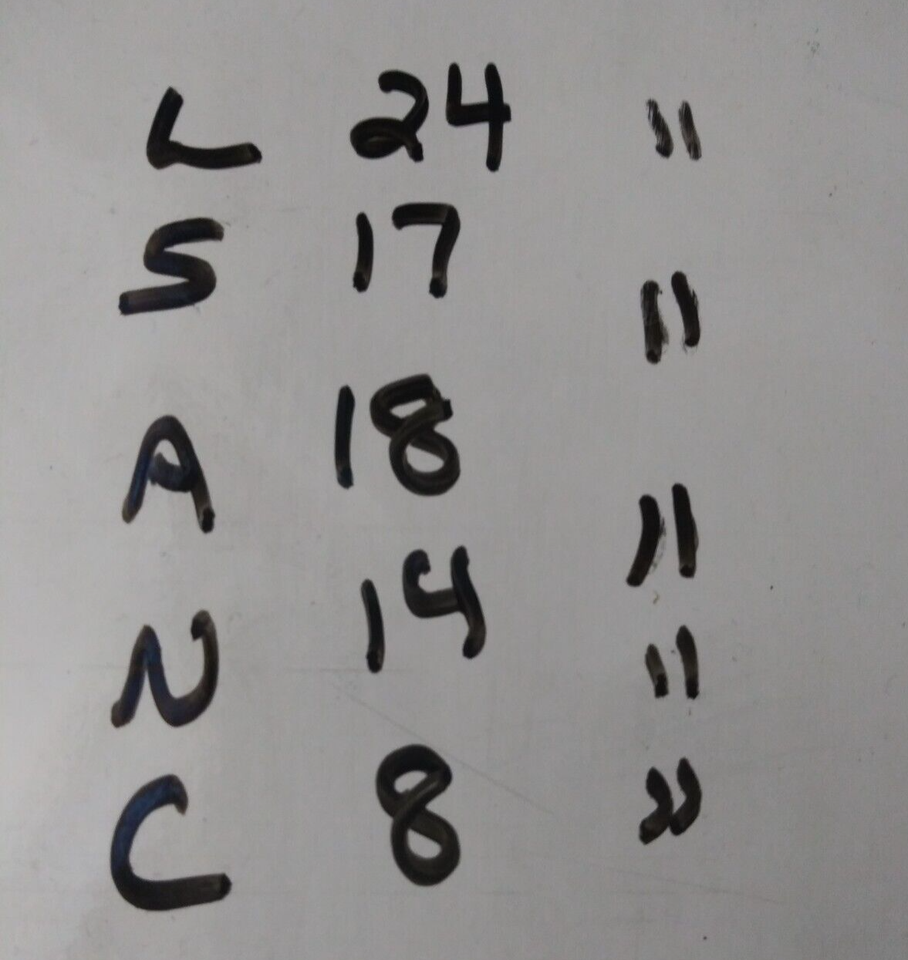 L 24 "
S 17 "
A 18 "
N 14 "
C 8 "